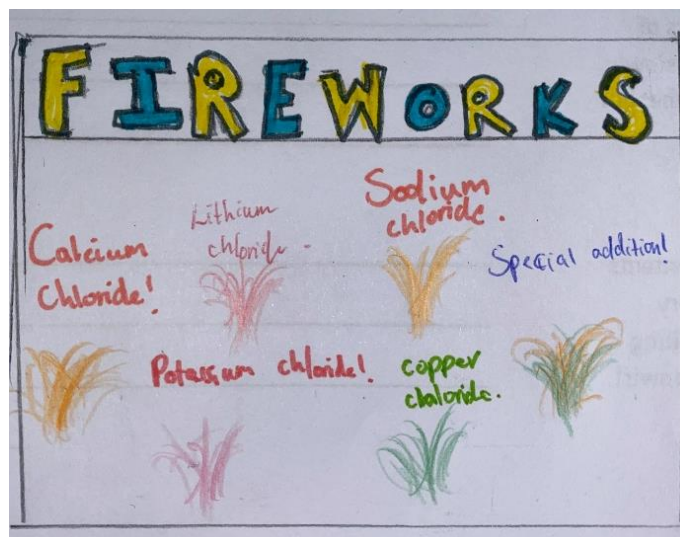 FIREWORKS
Calcium
Chloride!
Lithium
chloride.
Sodium
chloride.
Special addition!
Potassium chloride!
copper
chaloride.